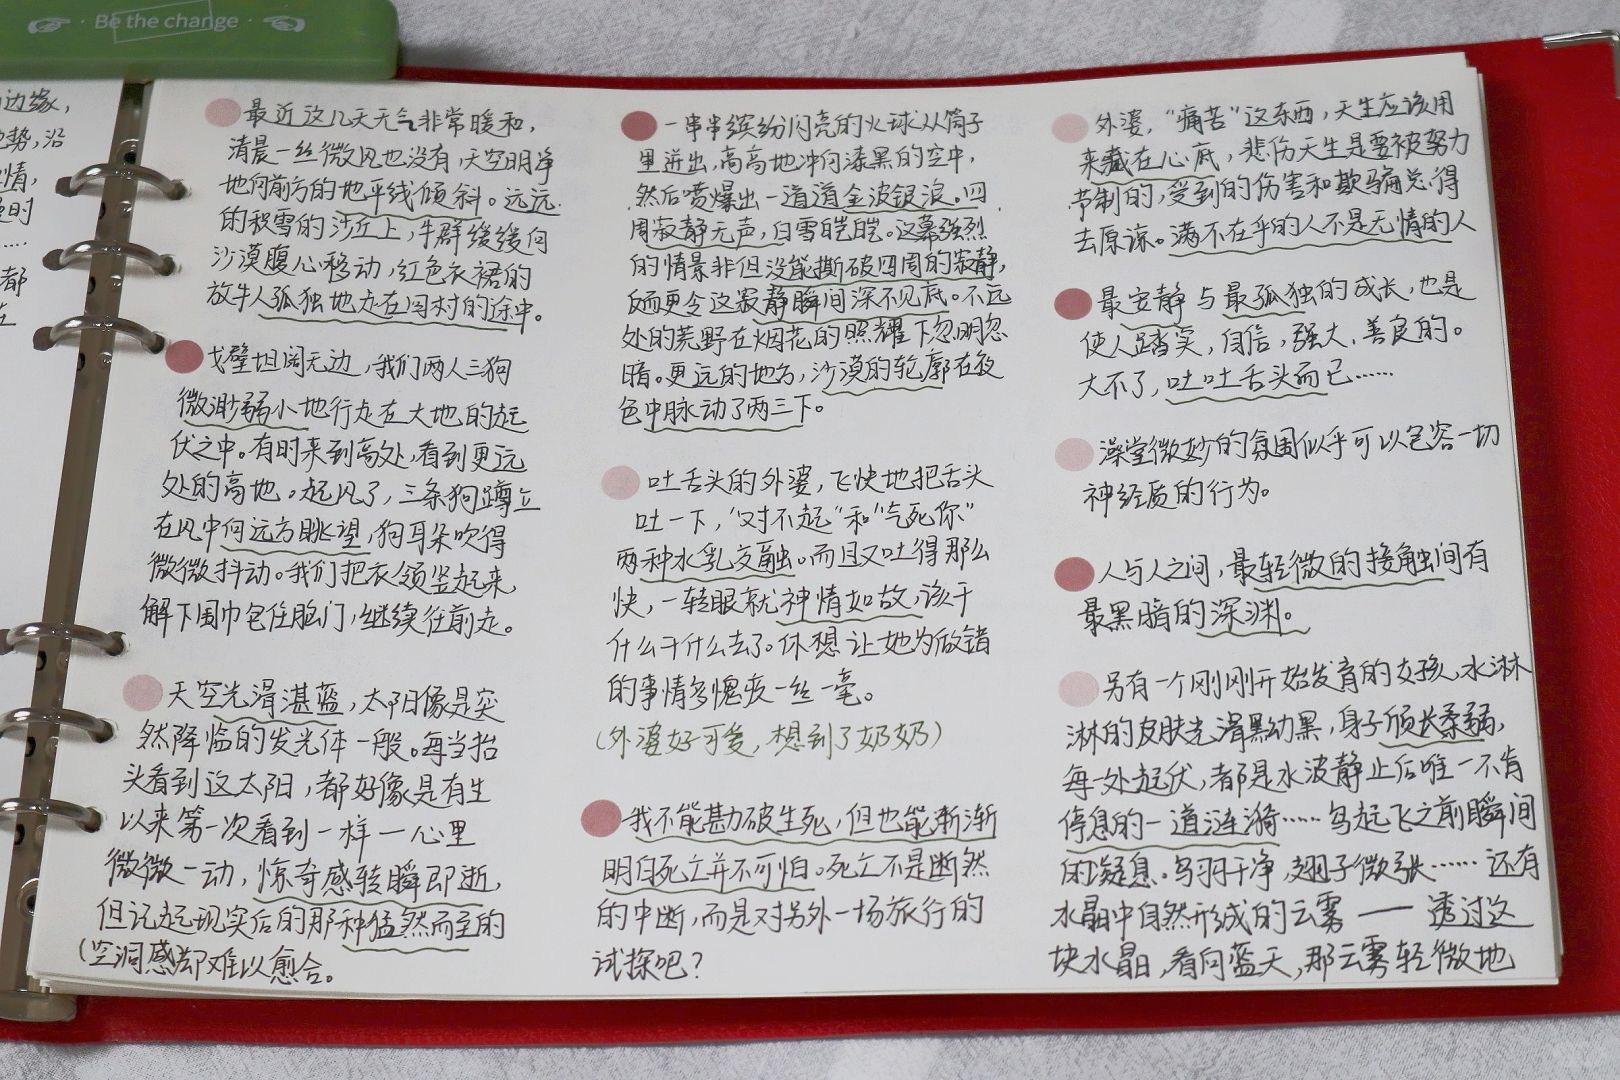 Be the change
边缘，
势，沿
情，
时
……
都
最近这几天天气非常暖和，
清晨一丝微风也没有，天空明净
地向前方的地平线倾斜。远远
的积雪的沙丘上，牛群缓缓向
沙漠腹心移动，红色衣裙的
放牛人孤独地走在回村的途中。
戈壁坦阔无边，我们两人三狗
微渺弱小地行走在大地的起
伏之中。有时来到高处，看到更远
处的高地。起风了，三条狗蹲立
在风中向远方眺望，狗耳朵吹得
微微抖动。我们把衣领竖起来，
解下围巾包住脸门，继续往前走。
天空光滑湛蓝，太阳像是突
然降临的发光体一般。每当抬
头看到这太阳，都好像是有生
以来第一次看到一样一心里
微微一动，惊奇感转瞬即逝，
但记起现实后的那种猛然而至的
空洞感却难以愈合。
一串串缤纷闪亮的火球从筒子
里迸出，高高地冲向漆黑的空中，
然后喷爆出一道道金波银浪。四
周寂静无声，白雪皑皑。这幕强烈
的情景非但没能撕破四周的寂静，
反而更令这寂静瞬间深不见底。不远
处的荒野在烟花的照耀下忽明忽
暗。更远的地方，沙漠的轮廓在夜
色中脉动了两三下。
吐舌头的外婆，飞快地把舌头
吐一下，“对不起”和“气死你”
两种水乳交融。而且又吐得那么
快，一转眼就神情如故，该干
什么干什么去了。休想让她为做错
的事情多愧疚一丝一毫。
（外婆好可爱，想到了奶奶）
我不能勘破生死，但也能渐渐
明白死亡并不可怕。死亡不是断然
的中断，而是对另外一场旅行的
试探吧？
外婆，“痛苦”这东西，天生应该用
来藏在心底，悲伤天生是要被努力
节制的，受到的伤害和欺骗总得
去原谅。满不在乎的人不是无情的人
最安静与最孤独的成长，也是
使人踏实，自信，强大，善良的。
大不了，吐吐舌头而已……
澡堂微妙的氛围似乎可以包容一切
神经质的行为。
人与人之间，最轻微的接触间有
最黑暗的深渊。
另有一个刚刚开始发育的女孩，水淋
淋的皮肤光滑黑幼黑，身子颀长柔弱，
每一处起伏，都是水波静止后唯一不肯
停息的一道涟漪……鸟起飞之前瞬间
的凝息。鸟羽干净，翅子微张……还有
水晶中自然形成的云雾——透过这
块水晶，看向蓝天，那云雾轻微地